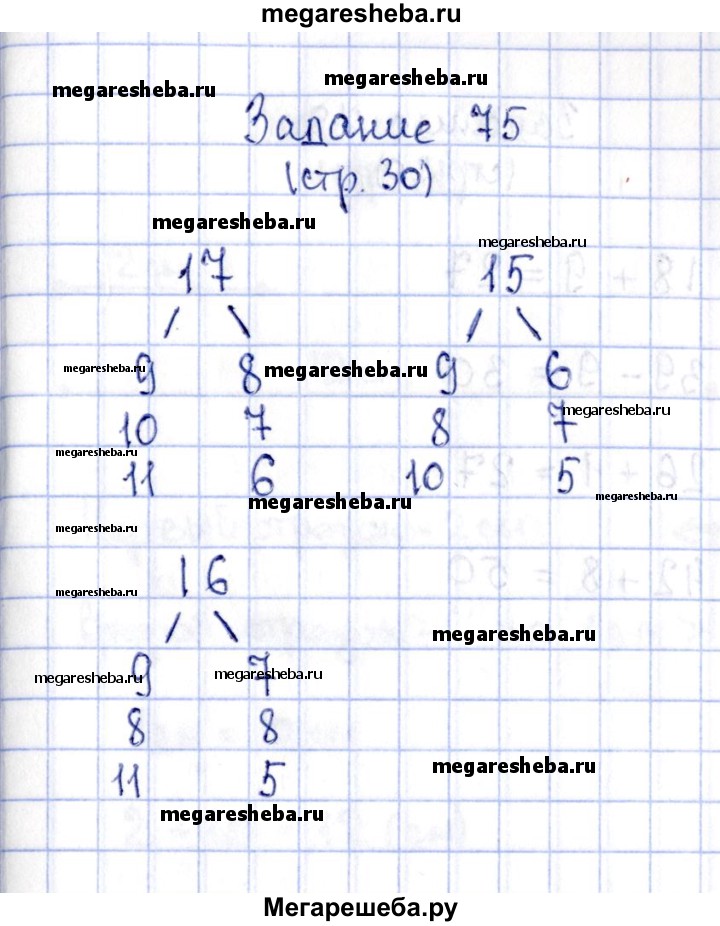 megaresheba.ru
megaresheba.ru
megaresheba.ru
Задание 75
(стр. 30)
megaresheba.ru
megaresheba.ru
17 15
/ \ / \
megaresheba.ru 9 8 megaresheba.ru 9 6
megaresheba.ru
10 7 8 7
megaresheba.ru
11 6 10 5
megaresheba.ru
megaresheba.ru
megaresheba.ru
16
megaresheba.ru
/ \
megaresheba.ru
9 7
megaresheba.ru
megaresheba.ru
8 8
11 5
megaresheba.ru
megaresheba.ru
Мегарешеба.ру